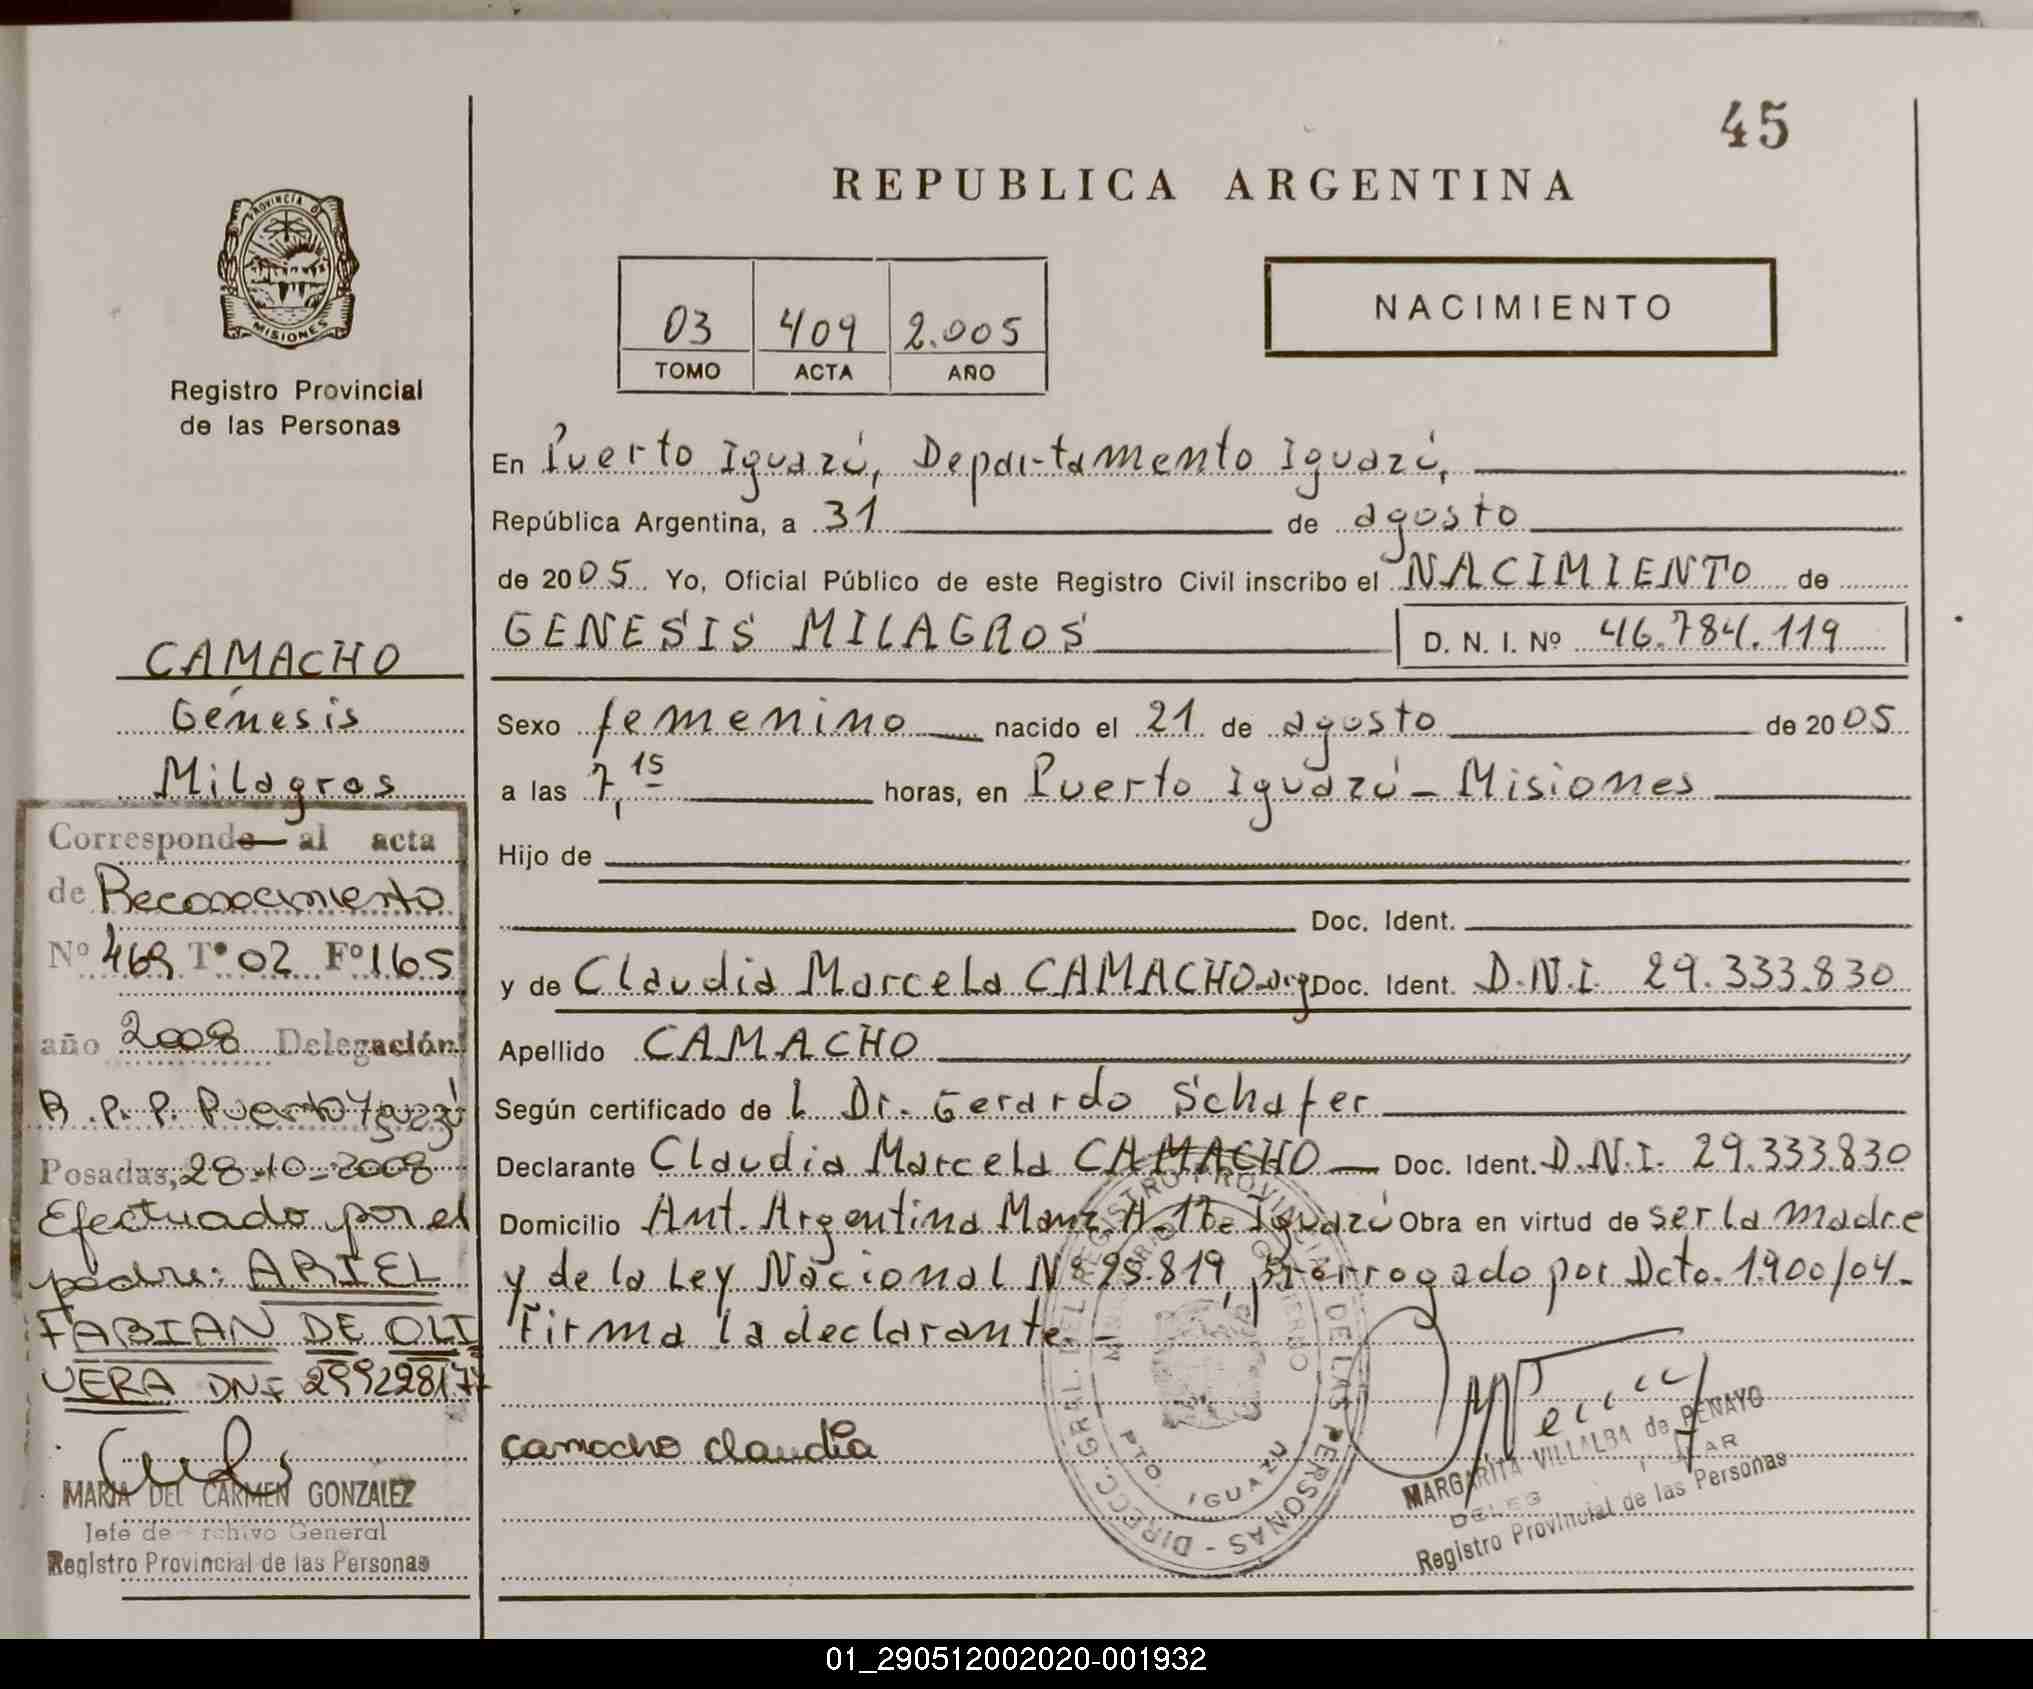 45
REPUBLICA ARGENTINA
PROVINCIA D
MISIONES
Registro Provincial
de las Personas
03 409 2.005
TOMO ACTA AÑO
NACIMIENTO
En Puerto Iguazú, Departamento Iguazú,
República Argentina, a 31 de agosto
de 2005 Yo, Oficial Público de este Registro Civil inscribo el NACIMIENTO de
GENESIS MILAGROS D. N. I. Nº 46.784.119
Sexo femenino nacido el 21 de agosto de 2005
a las 7,15 horas, en Puerto Iguazú - Misiones
Hijo de
Doc. Ident.
y de Claudia Marcela CAMACHO-arg Doc. Ident. D.N.I. 29.333.830
Apellido CAMACHO
Según certificado de L Dr. Gerardo Schafer
Declarante Claudia Marcela CAMACHO Doc. Ident. D.N.I. 29.333.830
Domicilio Ant. Argentina Manz. A-17- Iguazú Obra en virtud de ser la madre
y de la Ley Nacional Nº 25.819, prorrogado por Dcto. 1.900/04.-
Firma la declarante.-
camacho claudia
CAMACHO
Génesis
Milagros
Corresponde al acta
de Reconocimiento
Nº 469 Tº 02 Fº 165
año 2008 Delegación
R.P.P. Puerto Iguazú
Posadas, 28-10-2008
Efectuado por el
padre: ARIEL
FABIAN DE OLI
VERA DNI
MARIA DEL CARMEN GONZALEZ
Jefe de Archivo General
Registro Provincial de las Personas
DIRECC. GRAL. DEL REGISTRO PROVINCIAL DE LAS PERSONAS
PTO. IGUAZU
MARGARITA VILLALBA de PENAYO
Registro Provincial de las Personas
01_290512002020-001932